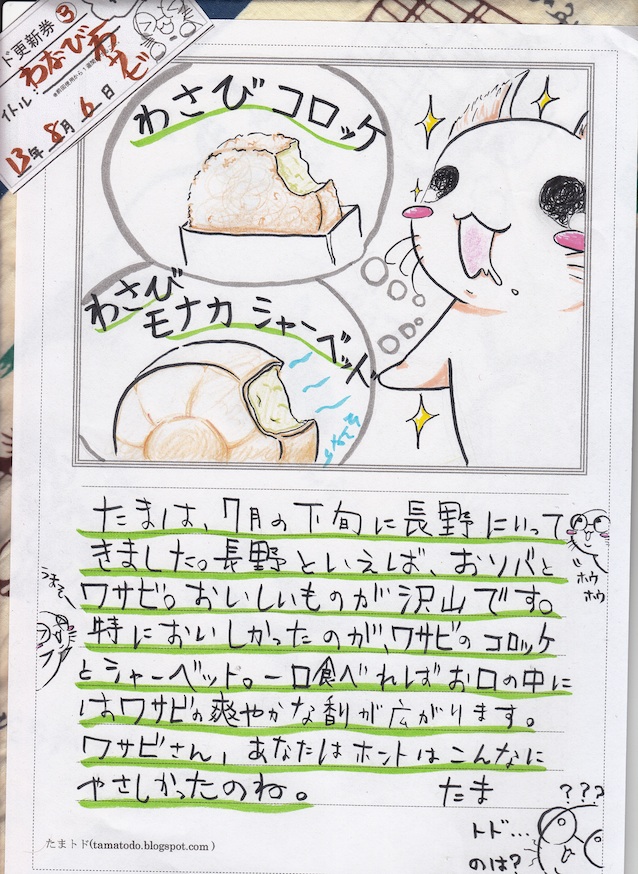 ド更新券③
イトル:わなびわえど
13年8月6日
わさびコロッケ
わさび
モナカシャーベット
たまは、7月の下旬に長野にいって
きました。長野といえば、おソバと
ワサビ。おいしいものが沢山です。
特においしかったのが、ワサビのコロッケ
とシャーベット。一口食べればお口の中に
はワサビの爽やかな香りが広がります。
ワサビさん、あなたはホントはこんなに
やさしかったのね。
たま
ホウ
ホウ
うまそ〜
???
トド...
のは?
たまトド(tamatodo.blogspot.com)